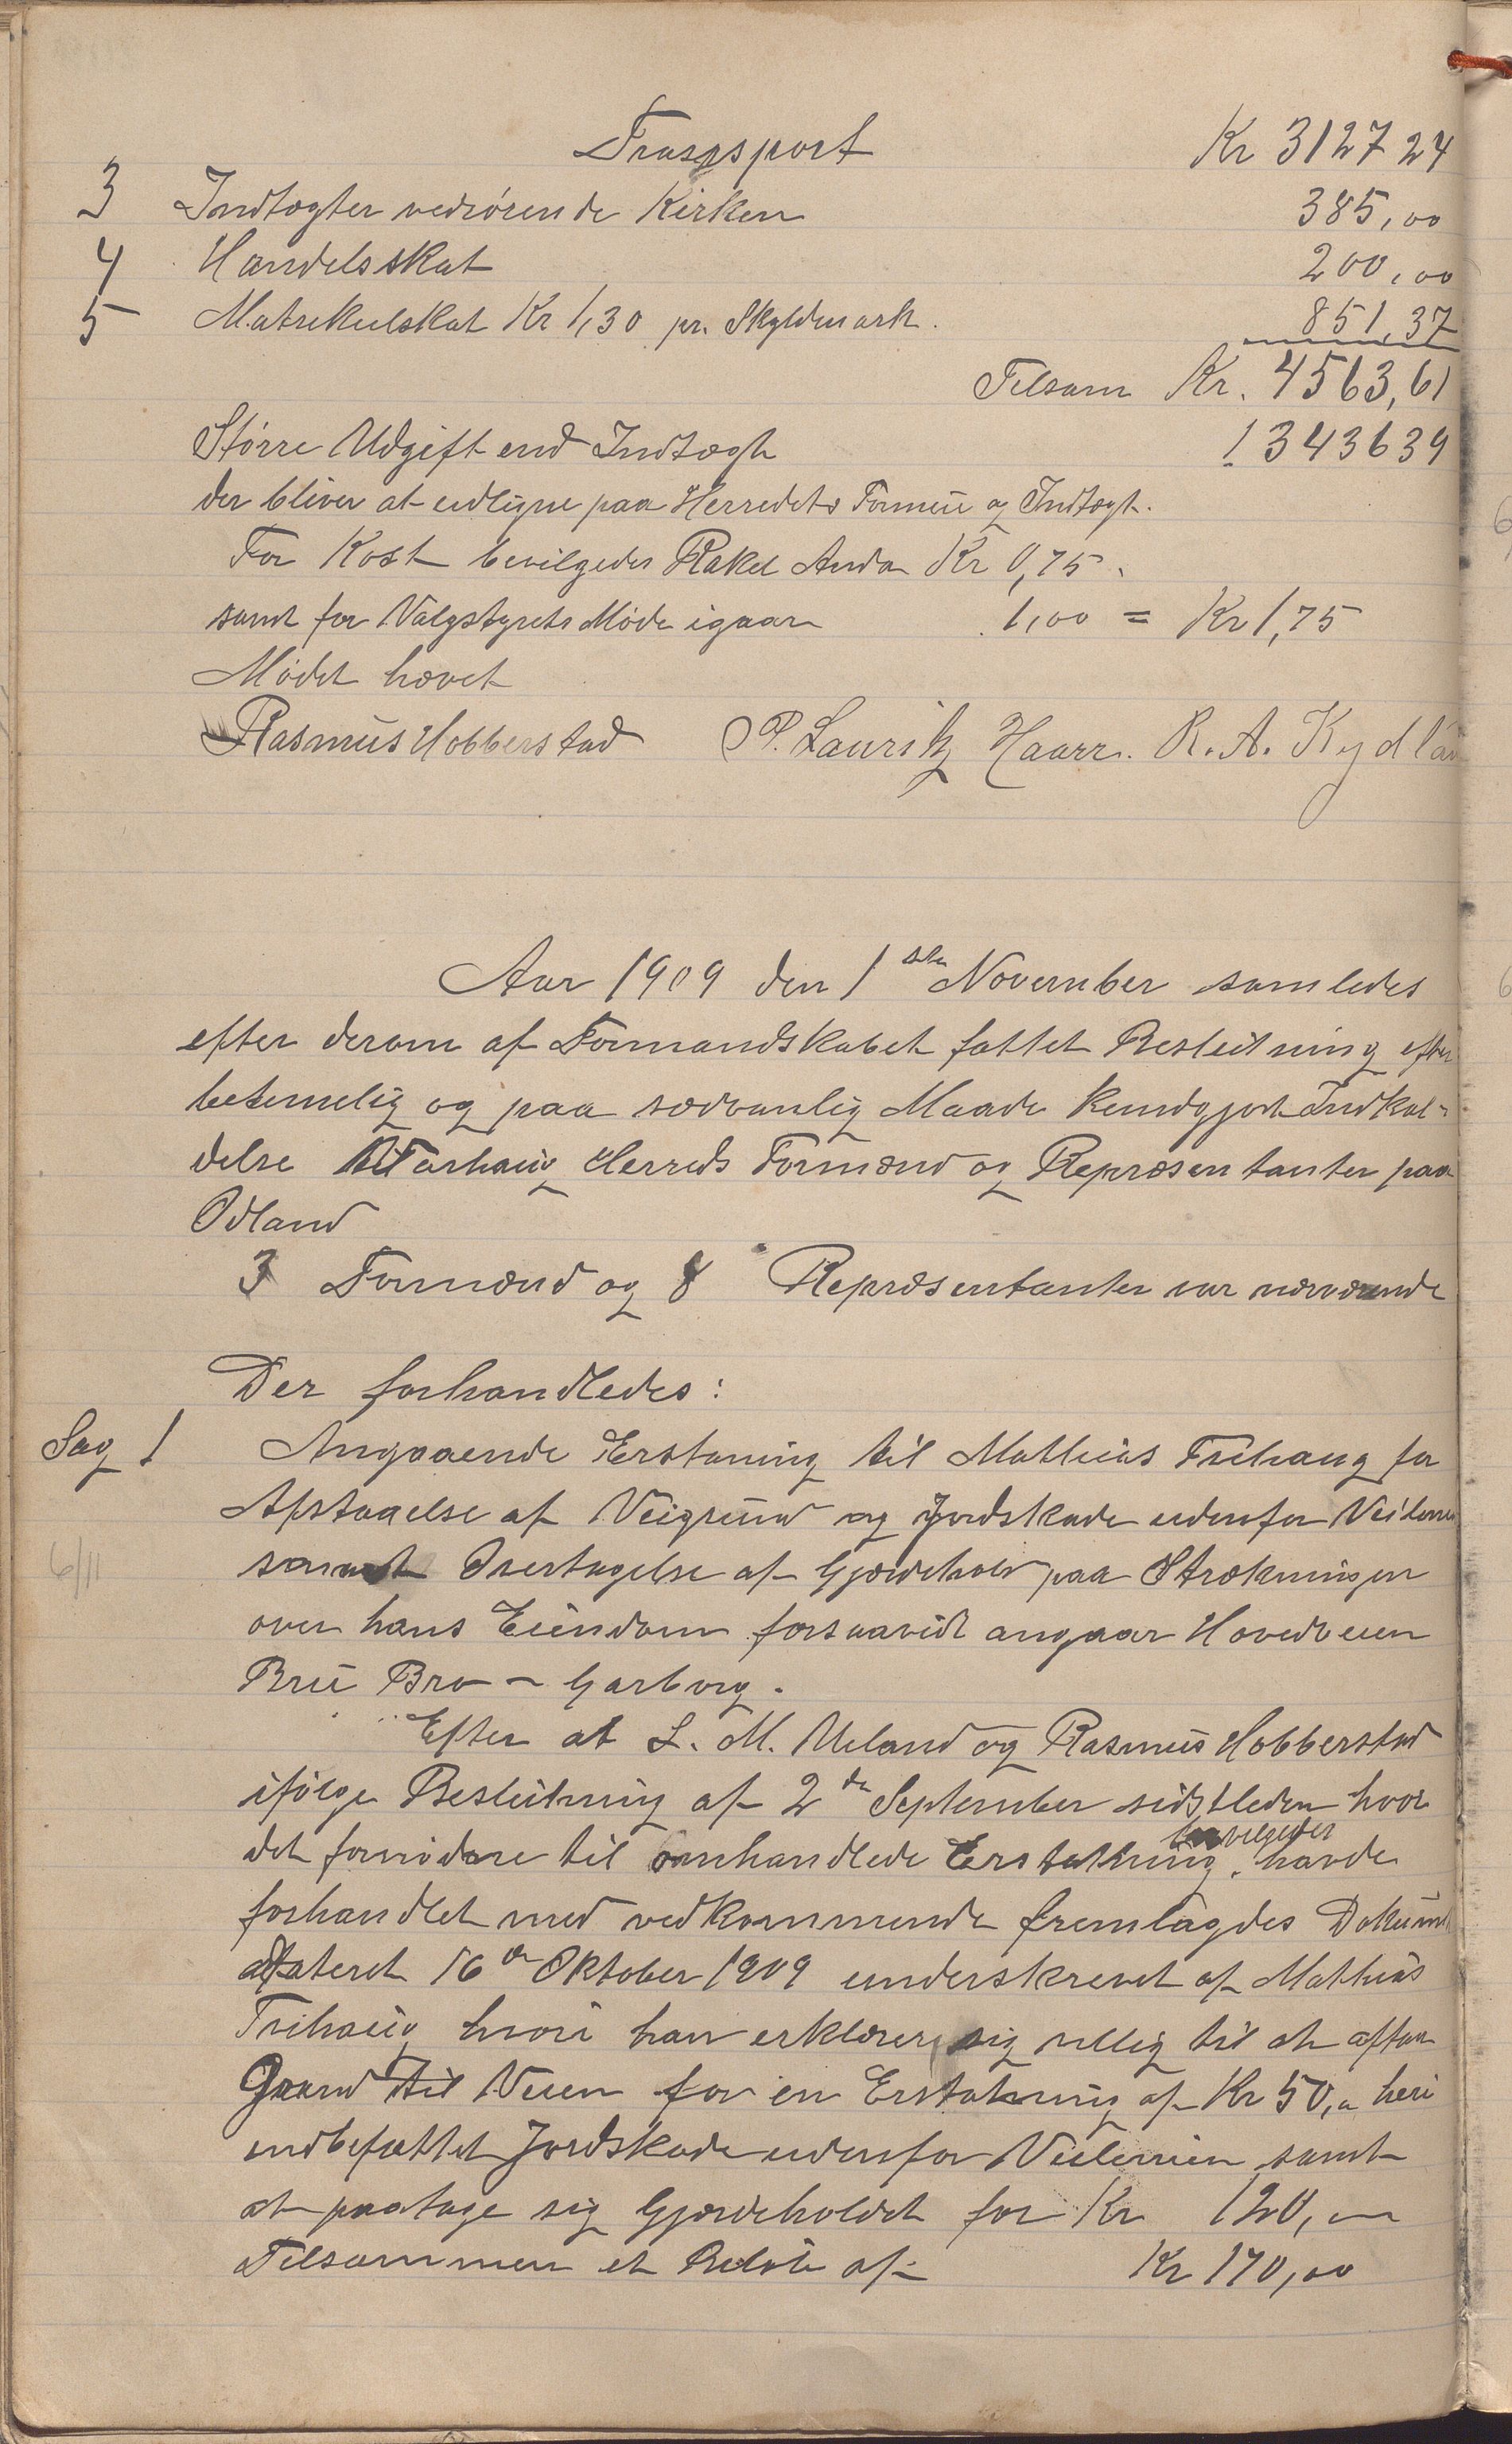 Transport Kr 3127 24
3 Indtægter vedrørende Kirken 385,00
4 Handelsskat 200,00
5 Matrikulskat Kr 1,30 pr. Skyldmark. 851,37
Tilsam Kr. 4563,61
Større Udgift end Indtægt 1343639
der bliver at udligne paa Herredets Formue og Indtægt.
For Kost bevilgedes Rakel Anda Kr 0,75.
samt for Valgstyrets Møde igaar 1,00 = Kr 1,75
Mødet hævet
Rasmus Hobberstad P. Lauritz Haarr. R. A. Kydlan
Aar 1909 den 1ste November samledes
efter derom af Formandskabet fattet Beslutning efter
betimelig og paa sædvanlig Maade kundgjort Indkal-
delse Herreds Formænd og Repræsentanter paa
Odland
3 Formænd og 8 Repræsentanter var nærværende
Der forhandledes:
Sag 1 Angaaende Erstatning til Mathias Trihaug for
Afstaaelse af Veigrund og Jordskade udenfor Veilinien
samt Overtagelse af Gjærdehold paa Strækningen
6/11
over hans Eiendom forsaavidt angaar Hovedveien
Brue Bro - Garborg.
Efter at L. M. Ueland og Rasmus Hobberstad
ifølge Beslutning af 2den September sidstleden hvor
bevilgedes
det fornødne til omhandlede Erstatning, havde
forhandlet med vedkommende fremlagdes Dokument
dateret 16de Oktober 1909 underskrevet af Mathias
Trihaug hvori han erklærer sig villig til at afstaa
Grund til Veien for en Erstatning af Kr 50,00 heri
indbefattet Jordskade udenfor Veilinien samt
at paatage sig Gjærdeholdet for Kr 120,00
Tilsammen et Beløb af Kr 170,00